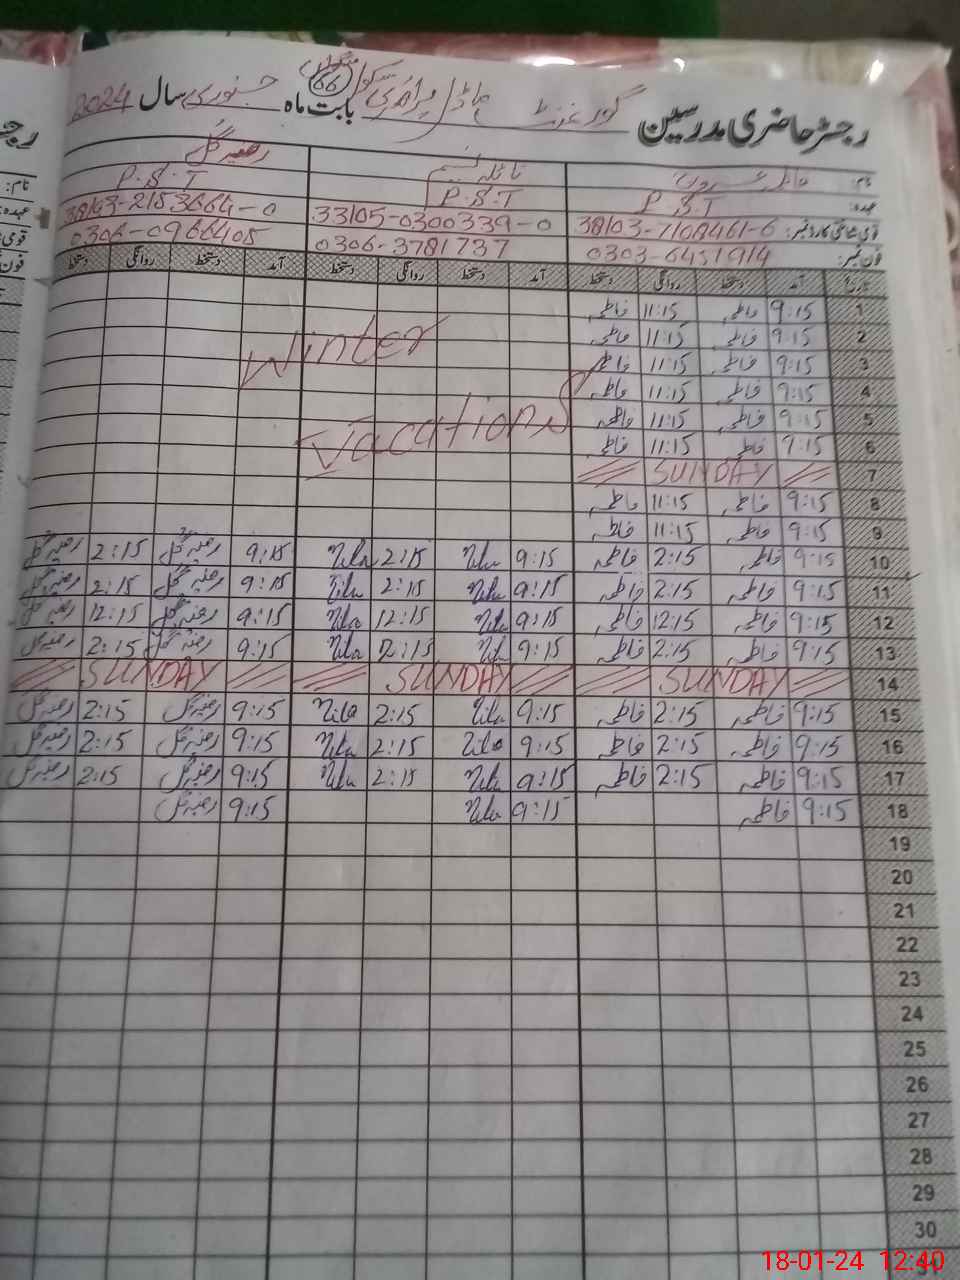 رجسٹر حاضری مدرسین گورنمنٹ ماڈل پرائمری سکول 66 بابت ماہ جنوری سال 2024
نام: فاطمہ نائلہ نسیم رضیہ گل
عہدہ: P.S.T P.S.T P.S.T
قومی شناختی کارڈ نمبر: 38103-7108461-6 33105-0300339-0 38103-2153664-0
فون نمبر: 0303-6451914 0306-3781737 0306-0966405
تاریخ آمد دستخط روانگی دستخط آمد دستخط روانگی دستخط آمد دستخط روانگی دستخط
1 9:15 فاطمہ 11:15 فاطمہ
2 9:15 فاطمہ 11:15 فاطمہ
Winter
3 9:15 فاطمہ 11:15 فاطمہ
4 9:15 فاطمہ 11:15 فاطمہ
Vacations
5 9:15 فاطمہ 11:15 فاطمہ
6 9:15 فاطمہ 11:15 فاطمہ
7 SUNDAY
8 9:15 فاطمہ 11:15 فاطمہ
9 9:15 فاطمہ 11:15 فاطمہ
10 9:15 فاطمہ 2:15 فاطمہ 9:15 Nila 2:15 Nila 9:15 رضیہ گل 2:15 رضیہ گل
11 9:15 فاطمہ 2:15 فاطمہ 9:15 Nila 2:15 Nila 9:15 رضیہ گل 2:15 رضیہ گل
12 9:15 فاطمہ 12:15 فاطمہ 9:15 Nila 12:15 Nila 9:15 رضیہ گل 12:15 رضیہ گل
13 9:15 فاطمہ 2:15 فاطمہ 9:15 Nila 2:15 Nila 9:15 رضیہ گل 2:15 رضیہ گل
14 SUNDAY SUNDAY SUNDAY
15 9:15 فاطمہ 2:15 فاطمہ 9:15 Nila 2:15 Nila 9:15 رضیہ گل 2:15 رضیہ گل
16 9:15 فاطمہ 2:15 فاطمہ 9:15 Nila 2:15 Nila 9:15 رضیہ گل 2:15 رضیہ گل
17 9:15 فاطمہ 2:15 فاطمہ 9:15 Nila 2:15 Nila 9:15 رضیہ گل 2:15 رضیہ گل
18 9:15 فاطمہ 9:15 Nila 9:15 رضیہ گل
19
20
21
22
23
24
25
26
27
28
29
30
31
18-01-24 12:40